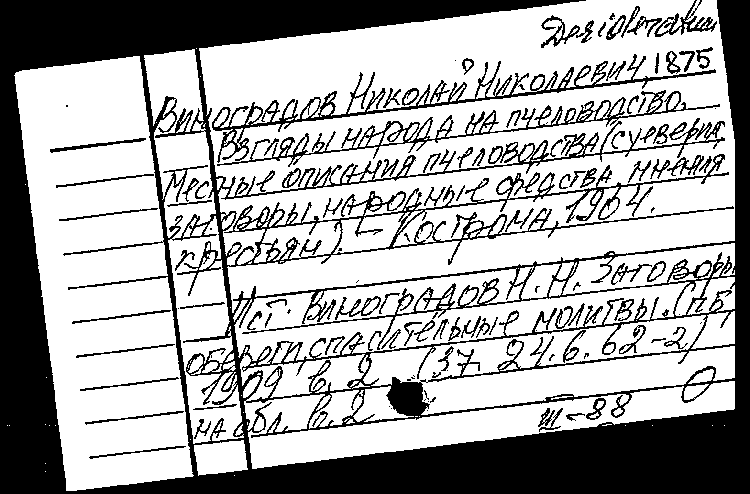 Desiderata
Виноградов Николай Николаевич, 1875
Взгляды народа на пчеловодство.
Местные описания пчеловодства (суеверия,
заговоры, народные средства, мнения
крестьян). - Кострома, 1904.
Ист. Виноградов Н.Н. Заговоры
обереги, спасительные молитвы. СПБ,
1909 в. 2 (37. 24.6.62-2)
на обл. в. 2
III-88